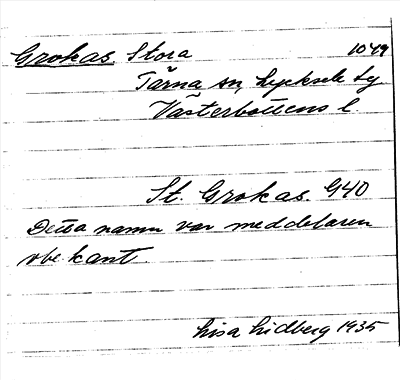 Grokas, Stora 1049
Tärna sn, Lycksele ty
Västerbottens l.
St. Grokas. G40
Detta namn var meddelaren
obekant.
Lisa Lidberg 1935